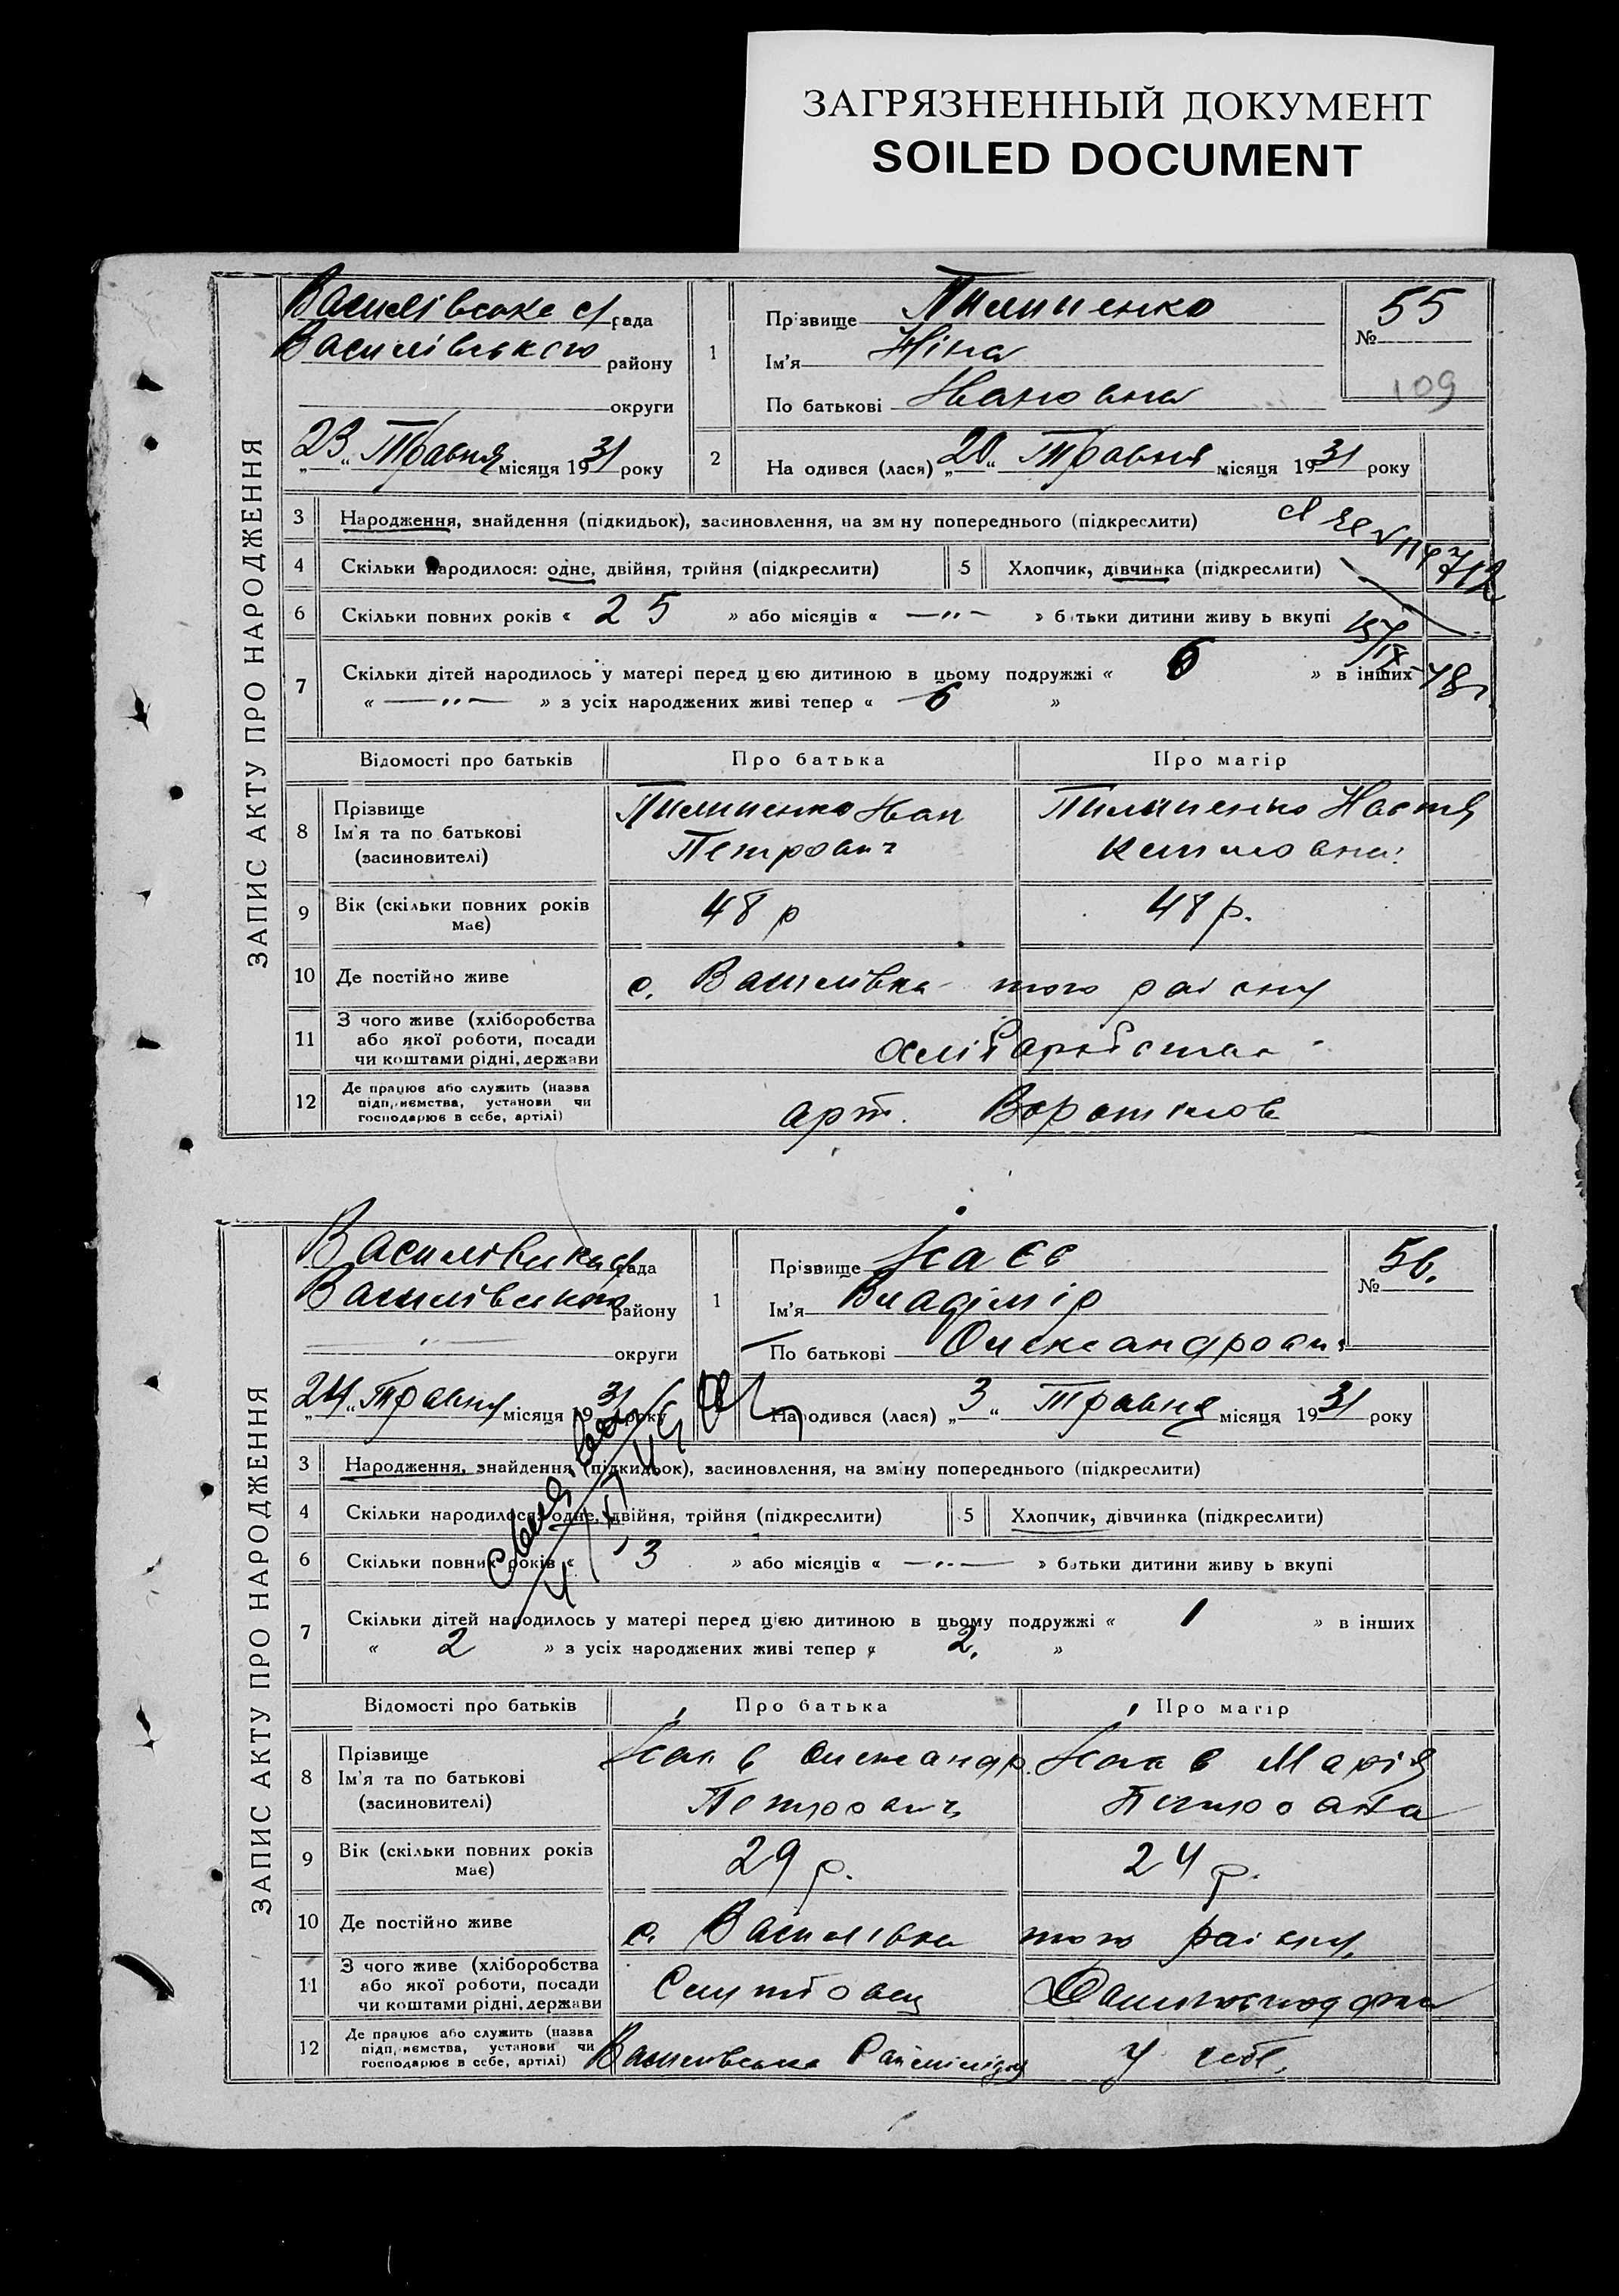 ЗАГРЯЗНЕННЫЙ ДОКУМЕНТ
SOILED DOCUMENT
ЗАПИС АКТУ ПРО НАРОДЖЕННЯ
Василівська с/рада
Василівського району
округи
„23“ Травня місяця 1931 року
1
Прізвище Пилипенко
Ім'я Ніна
По батькові Івановна
№ 55
109
2
Народився (лася) „20“ Травня місяця 1931 року
3 Народження, знайдення (підкидьок), засиновлення, на зміну попереднього (підкреслити)
4 Скільки народилося: одне, двійня, трійня (підкреслити) 5 Хлопчик, дівчинка (підкреслити)
6 Скільки повних років « 25 » або місяців « —„— » батьки дитини живуть вкупі
7 Скільки дітей народилось у матері перед цією дитиною в цьому подружжі « 6 » в інших
« —„— » з усіх народжених живі тепер « 6 »
Відомості про батьків Про батька Про матір
8 Прізвище
Ім'я та по батькові
(засиновителі)
Пилипенко Іван
Петрович
Пилипенко Настя
9 Вік (скільки повних років має) 48 р 48 р.
10 Де постійно живе с. Василівка того району
11 З чого живе (хліборобства
або якої роботи, посади
чи коштами рідні, держави
12 Де працює або служить (назва
підприємства, установи чи
господарює в себе, артілі)
арт. Ворошилов
ЗАПИС АКТУ ПРО НАРОДЖЕННЯ
Василівська с/рада
Василівського району
округи
„24“ Травня місяця 1931 року
1
Прізвище Ісаєв
Ім'я Владімір
По батькові Олександрович
№ 56.
Народився (лася) „3“ Травня місяця 1931 року
3 Народження, знайдення (підкидьок), засиновлення, на зміну попереднього (підкреслити)
4 Скільки народилося: одне, двійня, трійня (підкреслити) 5 Хлопчик, дівчинка (підкреслити)
6 Скільки повних років « 3 » або місяців « —„— » батьки дитини живуть вкупі
7 Скільки дітей народилось у матері перед цією дитиною в цьому подружжі « 1 » в інших
« 2 » з усіх народжених живі тепер « 2. »
Відомості про батьків Про батька Про матір
8 Прізвище
Ім'я та по батькові
(засиновителі)
Ісаєв Олександр
Петрович
Ісаєв Марія
Петровна
9 Вік (скільки повних років має) 29 р. 24 р.
10 Де постійно живе с. Василівка того району
11 З чого живе (хліборобства
або якої роботи, посади
чи коштами рідні, держави
Службовец Домогосподарка
12 Де працює або служить (назва
підприємства, установи чи
господарює в себе, артілі)
Василівська у себе.